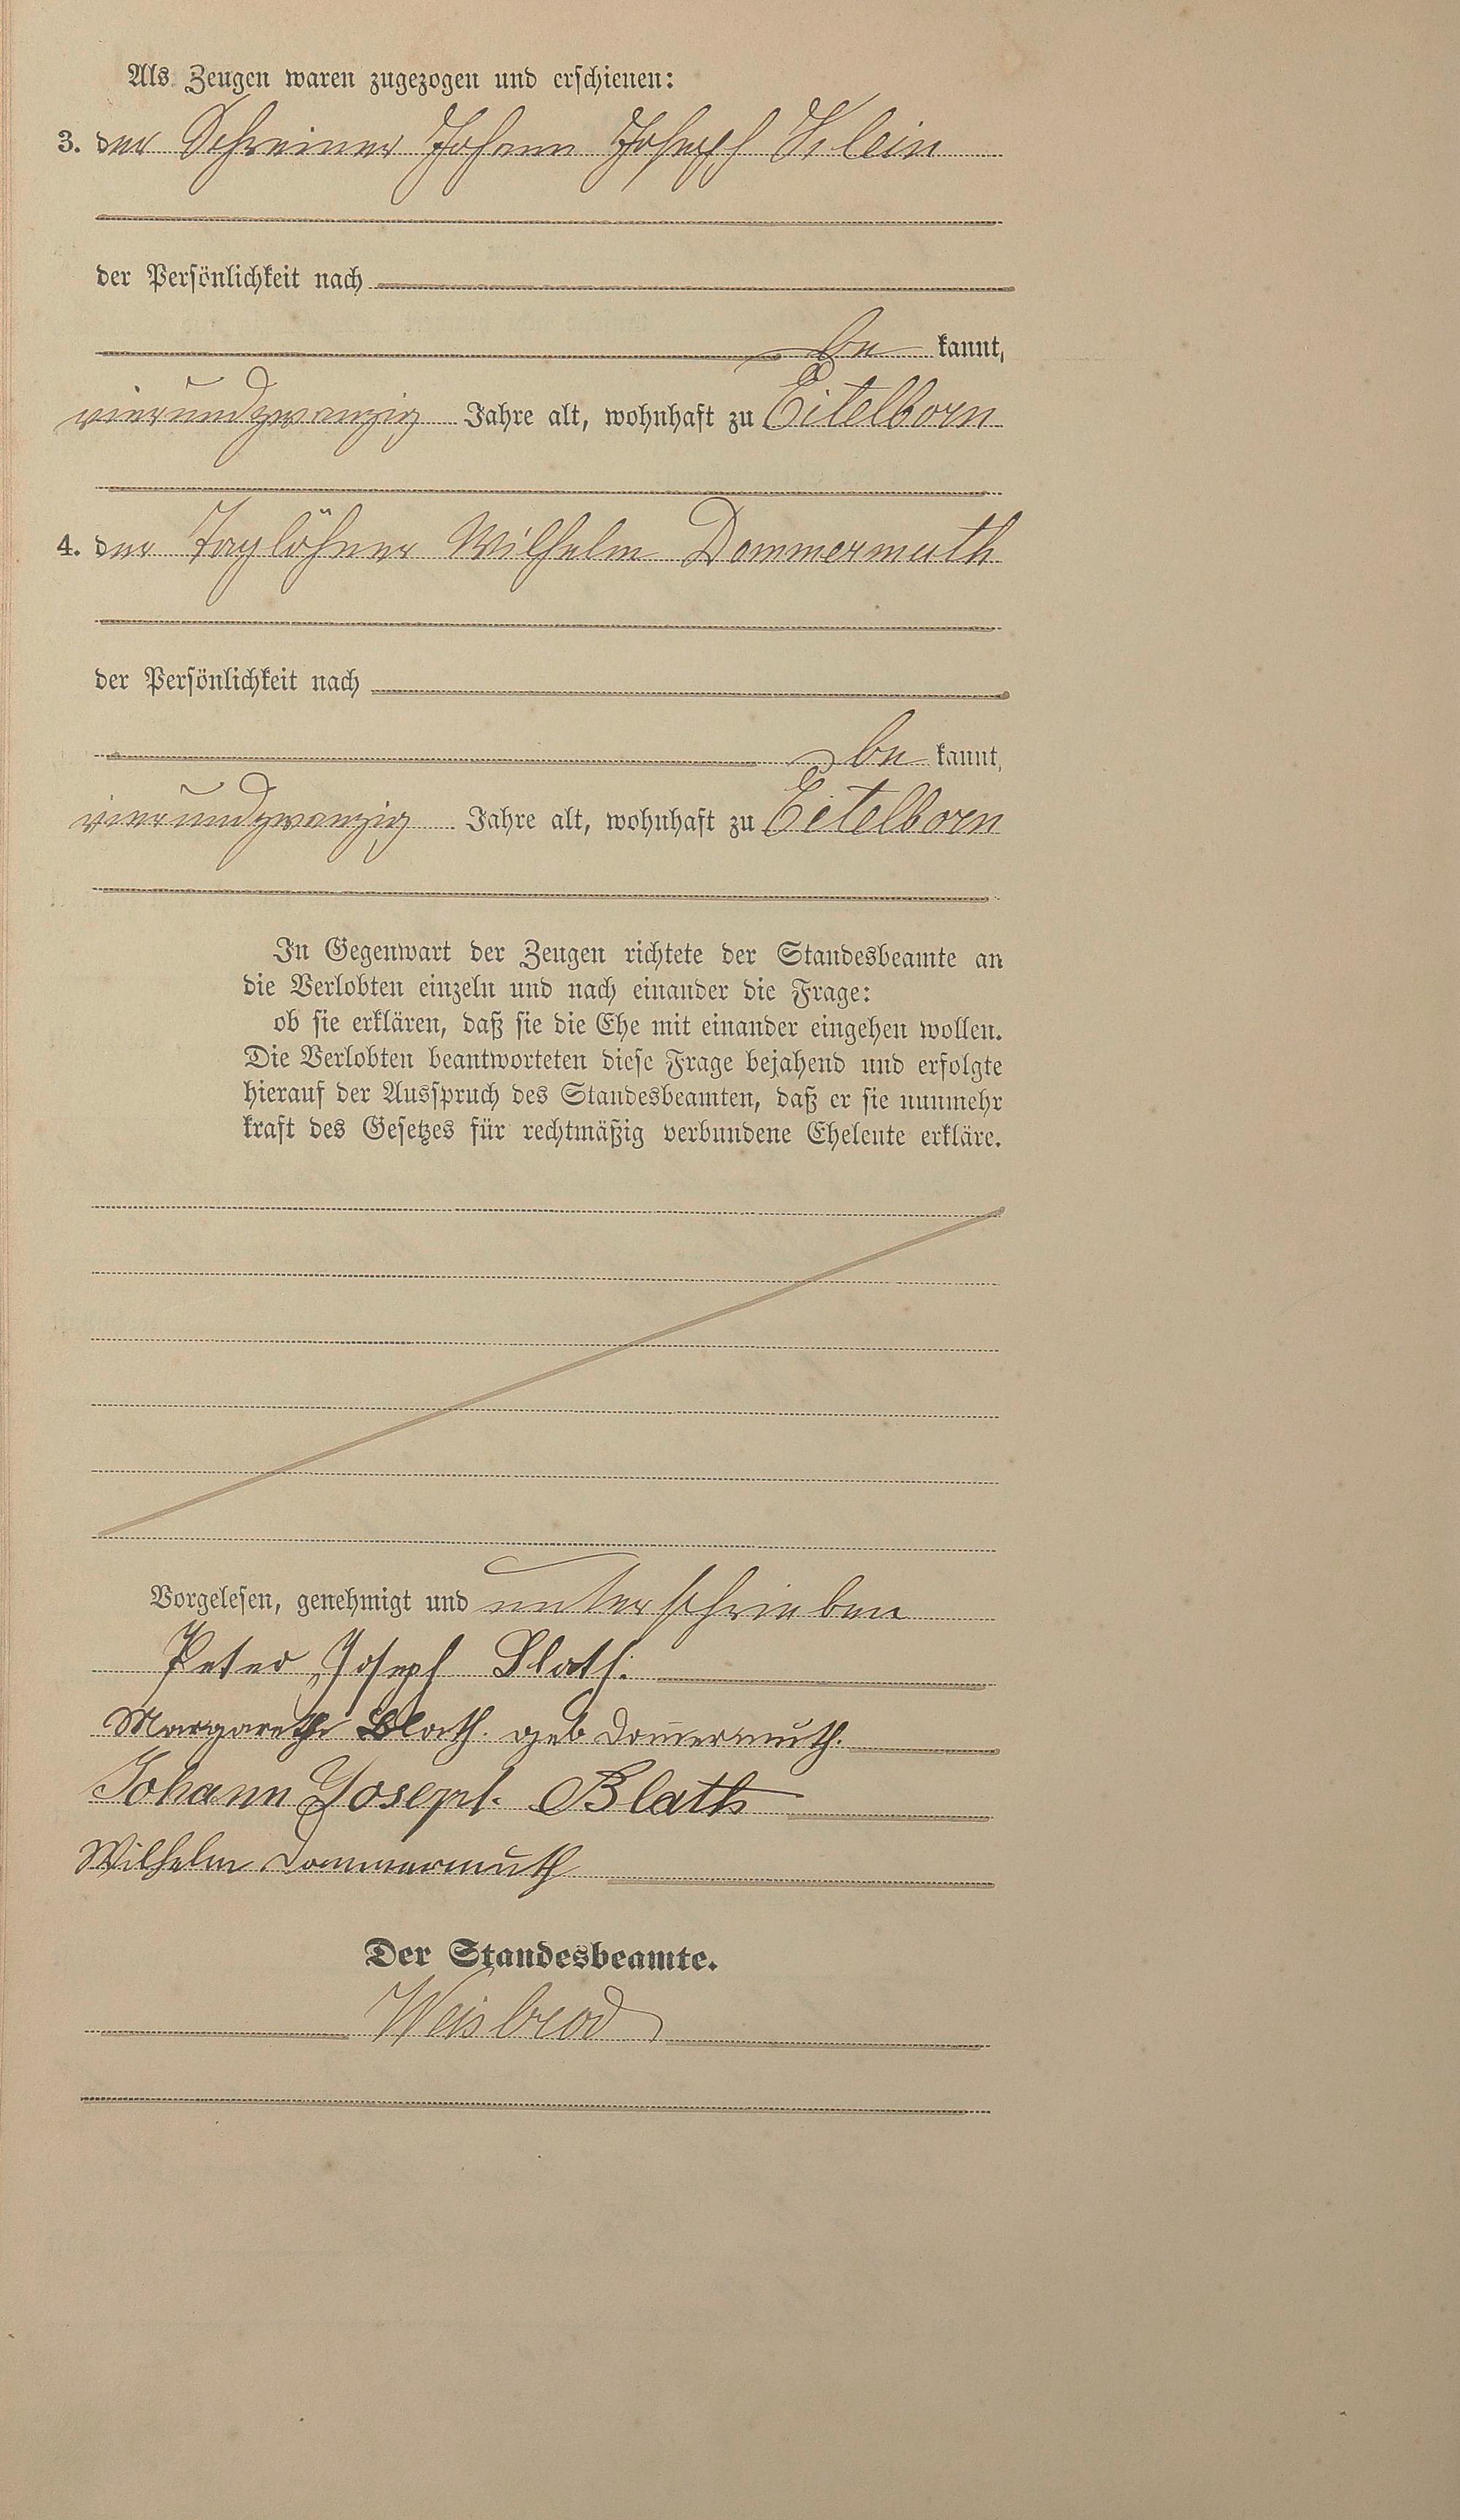 Als Zeugen waren zugezogen und erschienen:
3. der Schreiner Johann Joseph Klein
der Persönlichkeit nach
be kannt,
vierundzwanzig Jahre alt, wohnhaft zu Eitelborn
4. der Taglöhner Wilhelm Dommermuth
der Persönlichkeit nach
be kannt,
vierundzwanzig Jahre alt, wohnhaft zu Eitelborn
In Gegenwart der Zeugen richtete der Standesbeamte an
die Verlobten einzeln und nach einander die Frage:
ob sie erklären, daß sie die Ehe mit einander eingehen wollen.
Die Verlobten beantworteten diese Frage bejahend und erfolgte
hierauf der Ausspruch des Standesbeamten, daß er sie nunmehr
kraft des Gesetzes für rechtmäßig verbundene Eheleute erkläre.
Vorgelesen, genehmigt und unterschrieben
Peter Joseph Blath.
Margarethe Blath. geb Dom̅ermuth.
Johann Joseph. Blath
Wilhelm Dommermuth
Der Standesbeamte.
Weisbrod